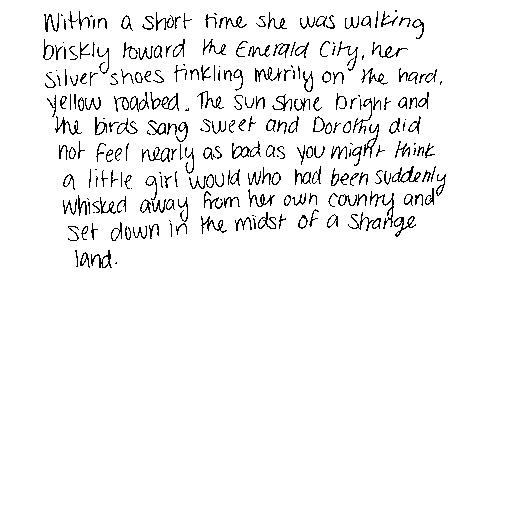 Within a short time she was walking
briskly toward the Emerald City, her
silver shoes tinkling merrily on the hard,
yellow roadbed. The sun shone bright and
the birds sang sweet and Dorothy did
not feel nearly as bad as you might think
a little girl would who had been suddenly
whisked away from her own country and
set down in the midst of a strange
land.